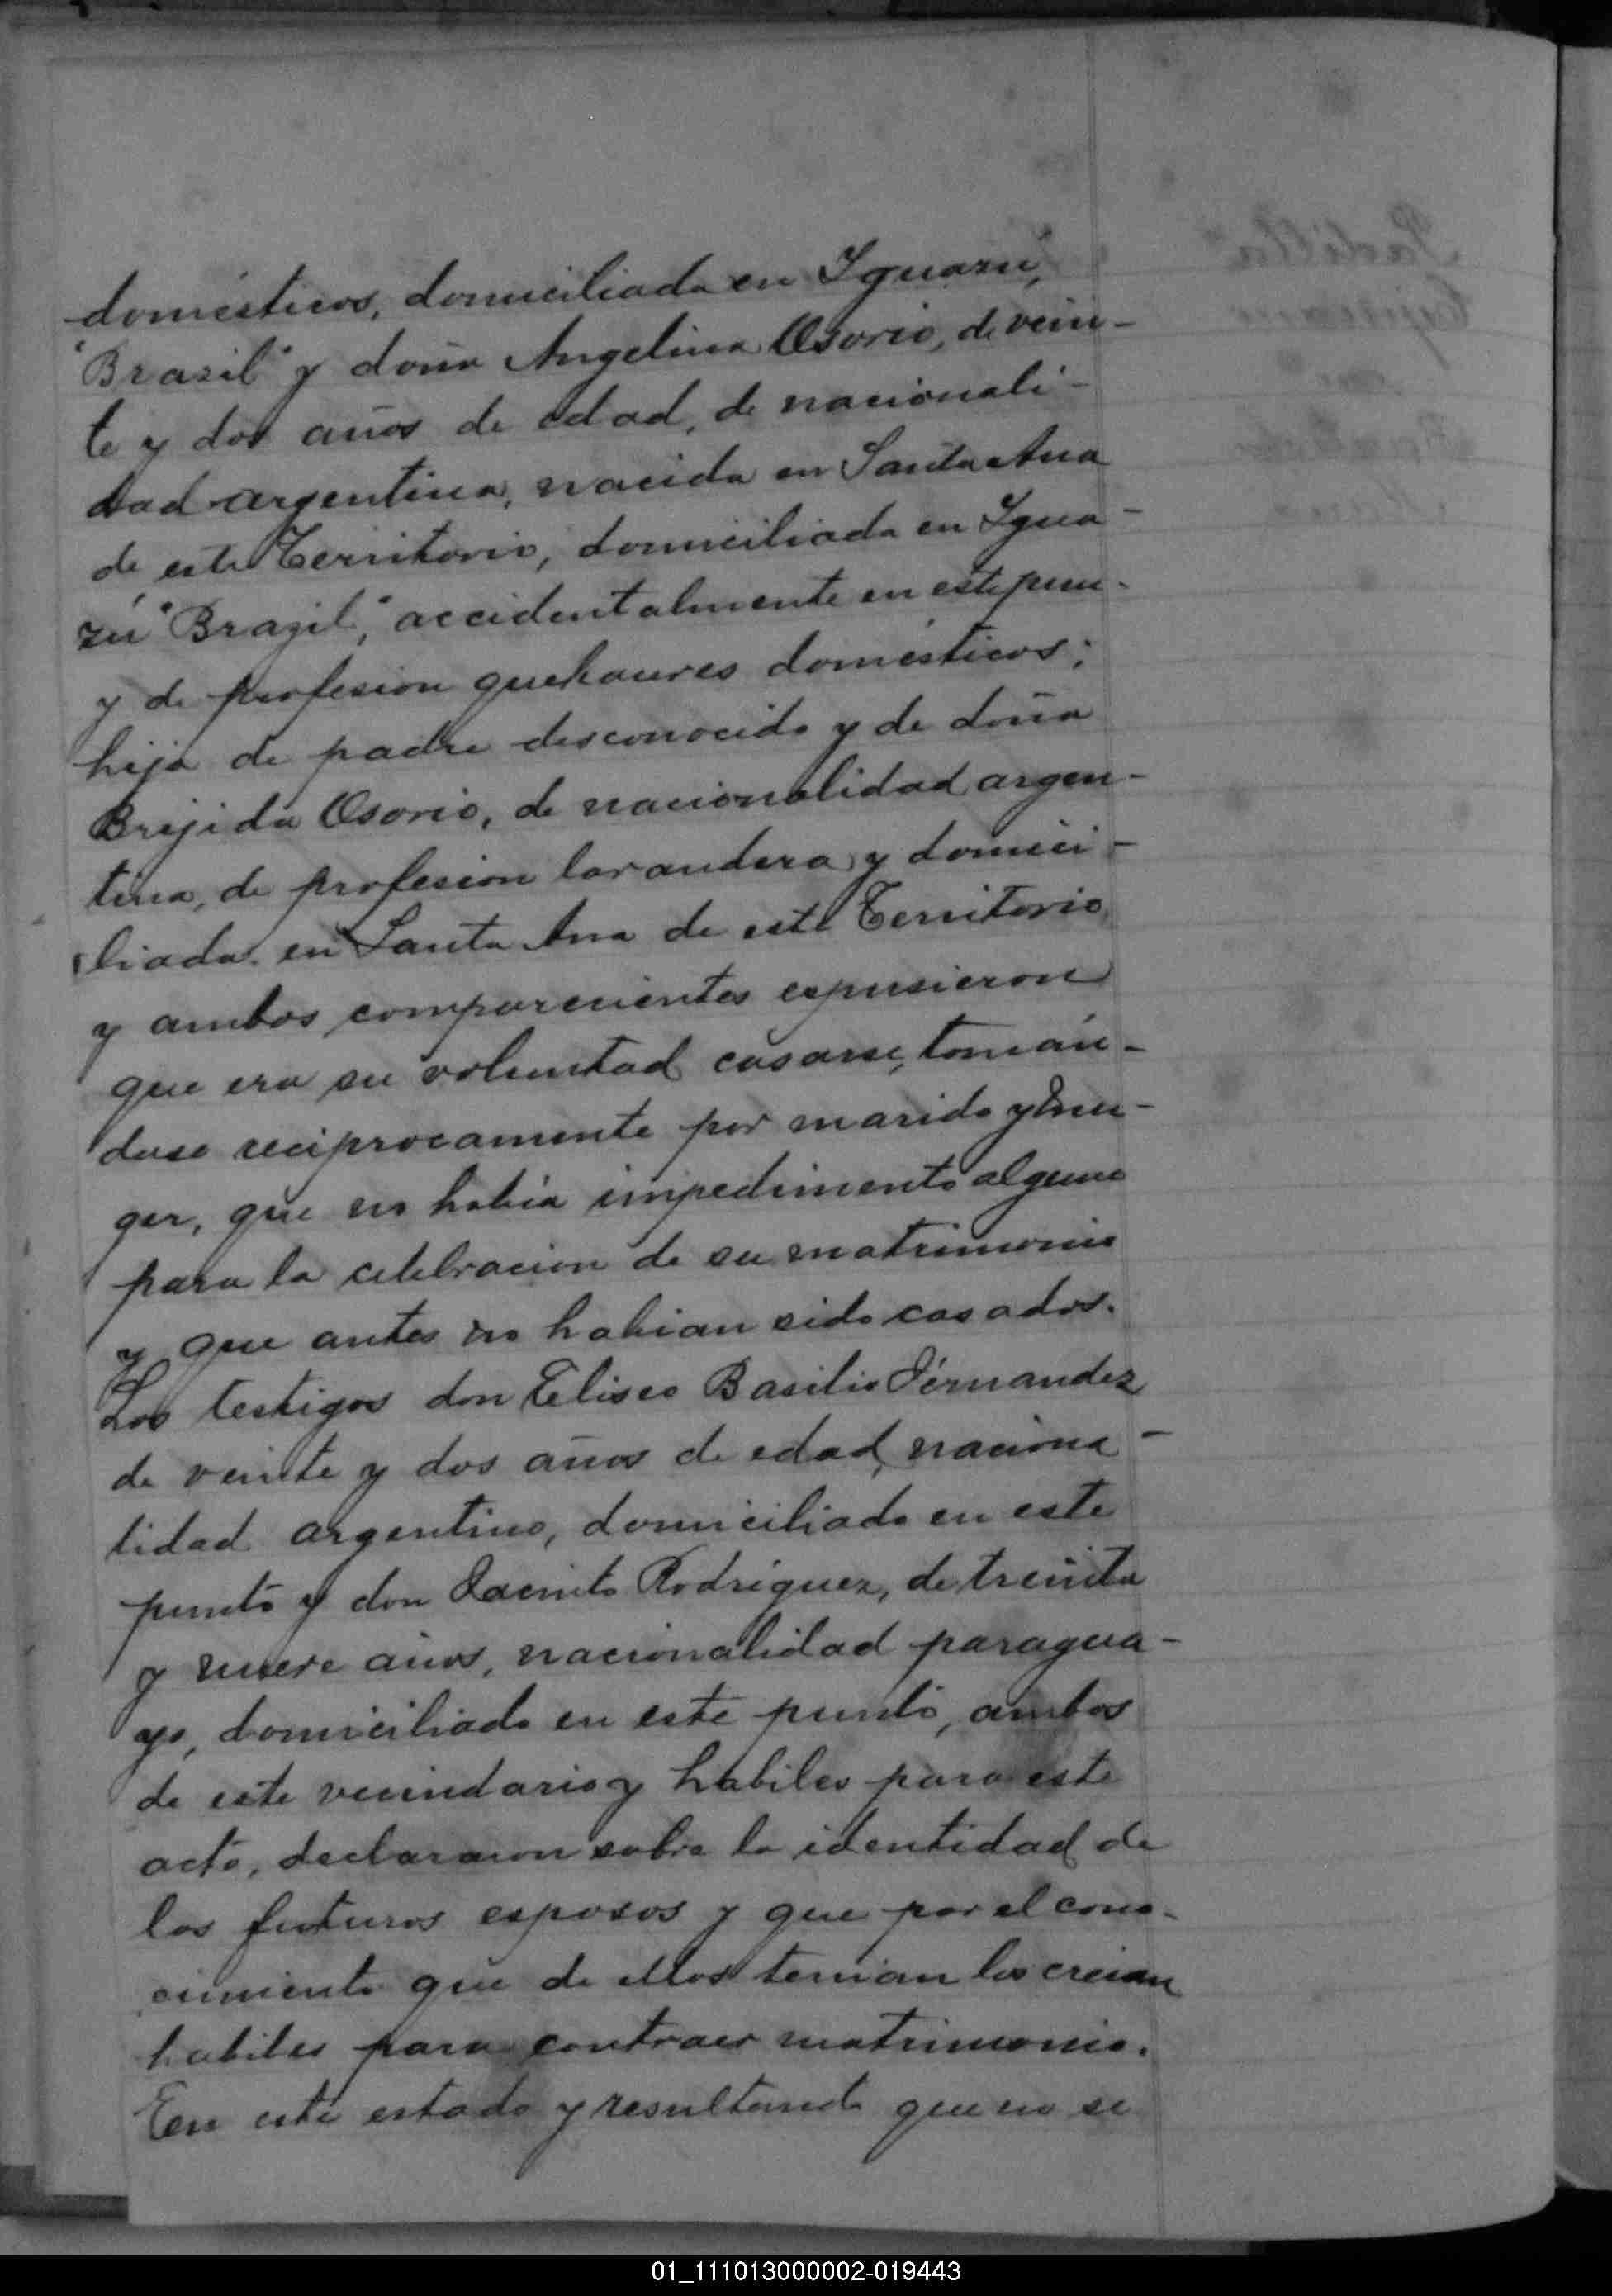 domésticos, domiciliada en Iguazú,
"Brazil" y doña Angelina Osorio, de vein-
te y dos años de edad, de nacionali-
dad argentina, nacida en Santa Ana
de este Territorio, domiciliada en Igua-
zú "Brazil", accidentalmente en este pun-
y de profesion quehaures domésticos;
hija de padre desconocido y de doña
Brijida Osorio, de nacionalidad argen-
tina, de profesion lavandera y domici-
liada en Santa Ana de este Territorio
y ambos comparecientes espusieron
que era su voluntad casarse, tomán-
dose reciprocamente por marido y mu-
ger, que no habia impedimento alguno
para la celebracion de su matrimonio
y que antes no habian sido casados.
Los testigos don Eliseo Basilio Férnandez
de veinte y dos años de edad, naciona-
lidad argentino, domiciliado en este
punto y don Jacinto Rodriguez, de treinta
y nueve años, nacionalidad paragua-
yo, domiciliado en este punto, ambos
de este vecindario y habiles para este
acto, declararon sobre la identidad de
los futuros esposos y que por el cono-
cimiento que de ellos tenian los creian
habiles para contraer matrimonio.
En este estado y resultando que no se
01_111013000002-019443